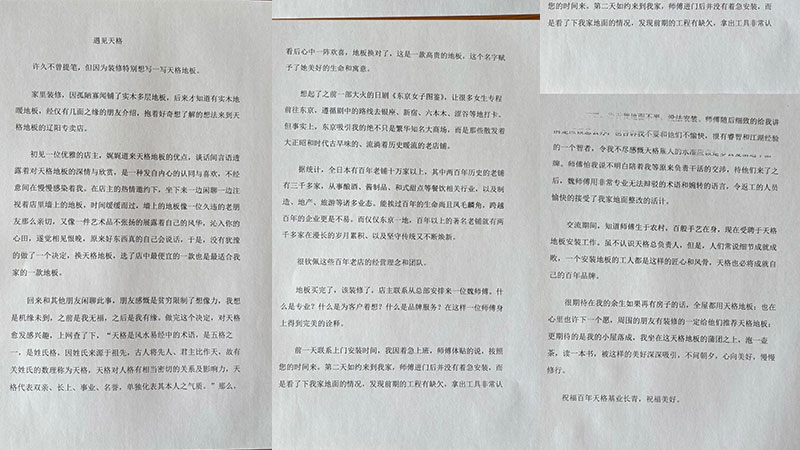 遇见天格
许久不曾提笔，但因为装修特别想写一写天格地板。
家里装修，因孤陋寡闻铺了实木多层地板，后来才知道有实木地
暖地板，经仅有几面之缘的朋友介绍，抱着好奇想了解的想法来到天
格地板的辽阳专卖店。
初见一位优雅的店主，娓娓道来天格地板的优点，谈话间言语透
露着对天格地板的深情与欣赏，是一种发自内心的认同与喜欢，不经
意间在慢慢感染着我。在店主的热情邀约下，坐下来一边闲聊一边注
视着店里墙上的地板，时间缓缓而过，墙上的地板像一位久违的老朋
友那么亲切，又像一件艺术品不张扬的凝露着自己的风华，沁入你的
心田，遂觉相见恨晚，原来好东西真的自己会说话，于是，没有犹豫
的做了一个决定，换天格地板，选了店中最便宜的一款也是最适合我
家的一款地板。
回来和其他朋友闲聊此事，朋友感慨是贫穷限制了想像力，我想
是机缘未到，之前是我无福，之后是我有缘，做完这个决定，对天格
愈发感兴趣，上网查了下，“天格是风水易经中的术语，是五格之
一，是姓氏格，因姓氏来源于祖先，古人将先人、君主比作天，故有
关姓氏的数理称为天格，天格对人格有相当密切的关系及影响力，天
格代表双亲、长上、事业、名誉，单独化表其本人之气质。”那么，
看后心中一阵欢喜，地板换对了，这是一款高贵的地板，这个名字赋
予了她美好的生命和寓意。
想起了之前一部大火的日剧《东京女子图鉴》，让很多女生专程
前往东京，遵循剧中的路线去银座、新宿、六本木、涩谷等地打卡。
但事实上，东京吸引我的绝不只是繁华知名大商场，而是那些散发着
大正昭和时代古早味的、流淌着历史暖流的老店铺。
据统计，全日本有百年老铺十万家以上，其中两百年历史的老铺
有三千多家，从事酿酒、酱制品、和式甜点等餐饮相关行业，以及制
造、地产、旅游等诸多业态。能挨过百年的生命尚且凤毛麟角，跨越
百年的企业更是不易。而仅仅东京一地，百年以上的著名老铺就有两
千多家在漫长的岁月累积、以及坚守传统又不断焕新。
很钦佩这些百年老店的经营理念和团队。
地板买完了，该装修了，店主联系从总部安排来一位魏师傅。什
么是专业？什么是为客户着想？什么是品牌服务？在这样一位师傅身
上得到完美的诠释。
前一天联系上门安装时间，我因着急上班，师傅体贴的说，按照
您的时间来，第二天如约来到我家，师傅进门后并没有着急安装，而
是看了下我家地面的情况，发现前期的工程有缺欠，拿出工具非常认
您的时间来，第二天如约来到我家，师傅进门后并没有着急安装，而
是看了下我家地面的情况，发现前期的工程有缺欠，拿出工具非常认
师傅随后细致的给我讲
我不要和他们不愉快，很有睿智和江湖经验
的一个智者，令我不尽感慨天格
牌。师傅怕我说不明白陪着我等原来负责干活的交涉，待他们来了之
后，魏师傅用非常专业无法辩驳的术语和婉转的语言，令返工的人员
愉快的接受了我家地面整改的活计。
交流期间，知道师傅生于农村，百般手艺在身，现在受聘于天格
地板安装工作。虽不认识天格总负责人，但是，人们常说细节成就成
败，一个安装地板的工人都是这样的匠心和风骨，天格也必将成就自
己的百年品牌。
很期待在我的余生如果再有房子的话，全屋都用天格地板；也在
心里也许下一个愿，周围的朋友有装修的一定给他们推荐天格地板；
更期待的是我的小屋落成，我坐在这天格地板的蒲团之上，泡一壶
茶，读一本书，被这样的美好深深吸引，不问朝夕，心向美好，慢慢
修行。
祝福百年天格基业长青，祝福美好。